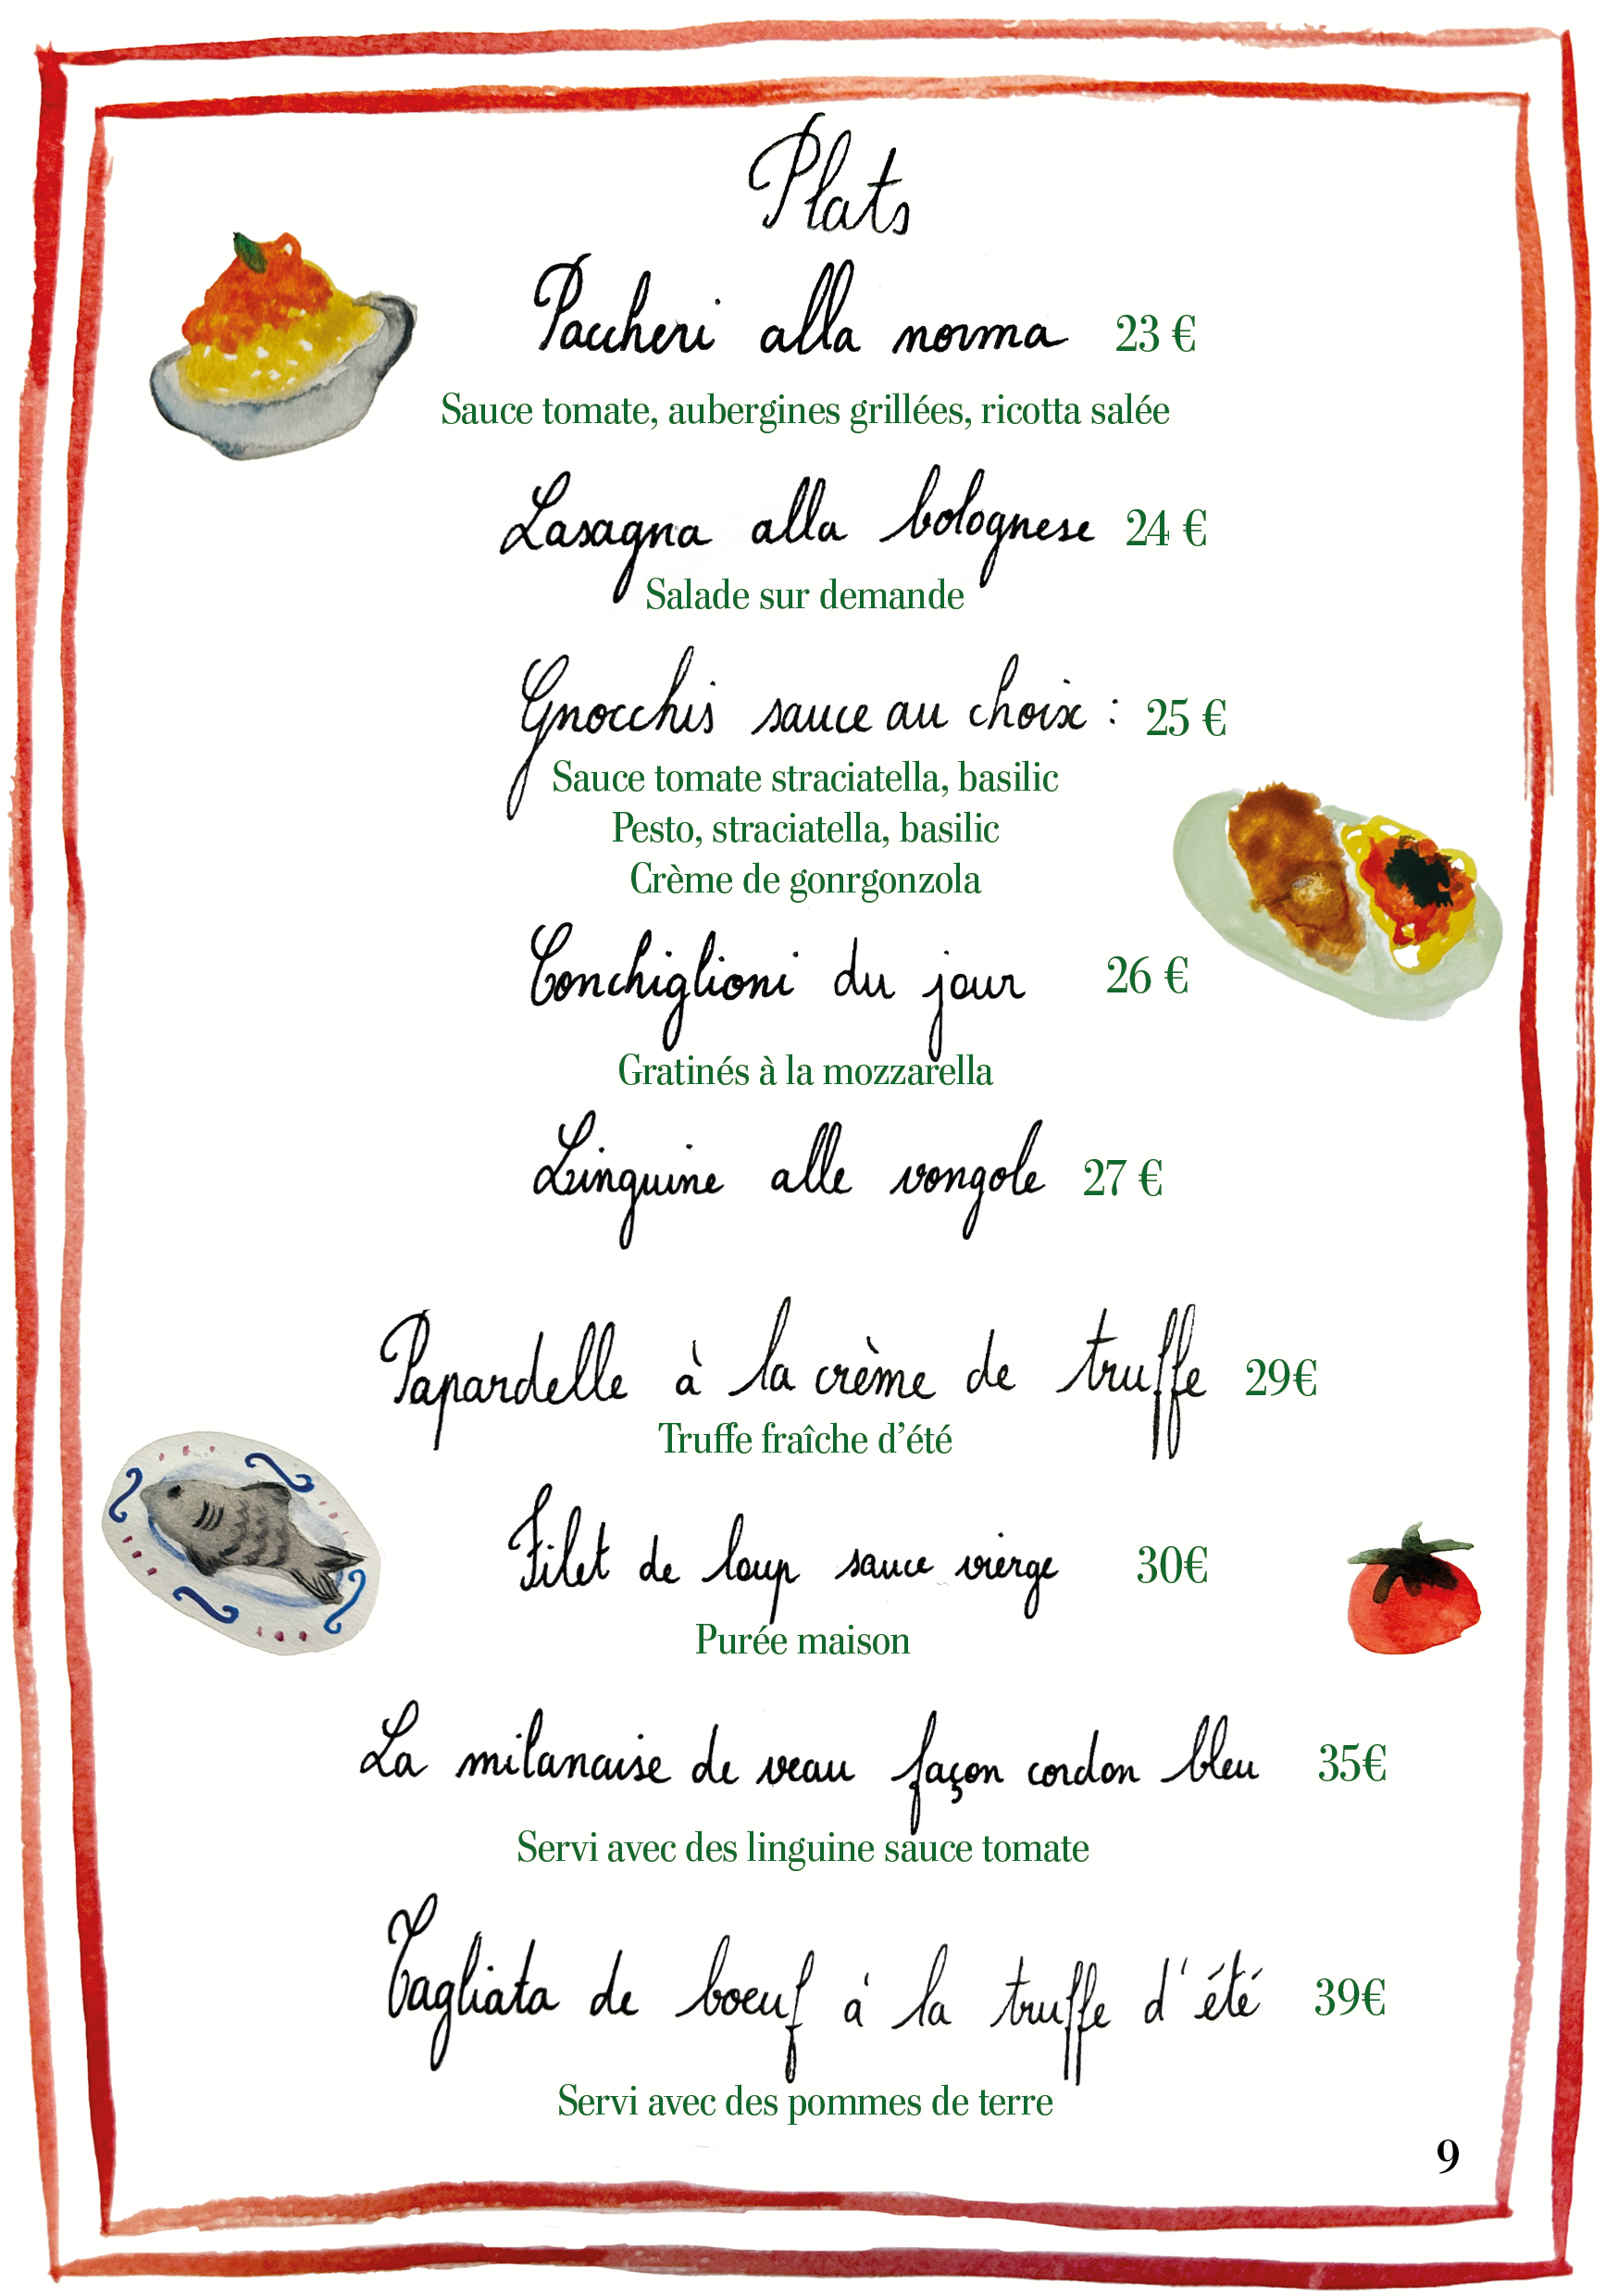 Plats
Paccheri alla norma 23 €
Sauce tomate, aubergines grillées, ricotta salée
Lasagna alla bolognese 24 €
Salade sur demande
Gnocchis sauce au choix : 25 €
Sauce tomate straciatella, basilic
Pesto, straciatella, basilic
Crème de gonrgonzola
Conchiglioni du jour 26 €
Gratinés à la mozzarella
Linguine alle vongole 27 €
Papardelle à la crème de truffe 29€
Truffe fraîche d’été
Filet de loup sauce vierge 30€
Purée maison
La milanaise de veau façon cordon bleu 35€
Servi avec des linguine sauce tomate
Tagliata de boeuf à la truffe d'été 39€
Servi avec des pommes de terre
9